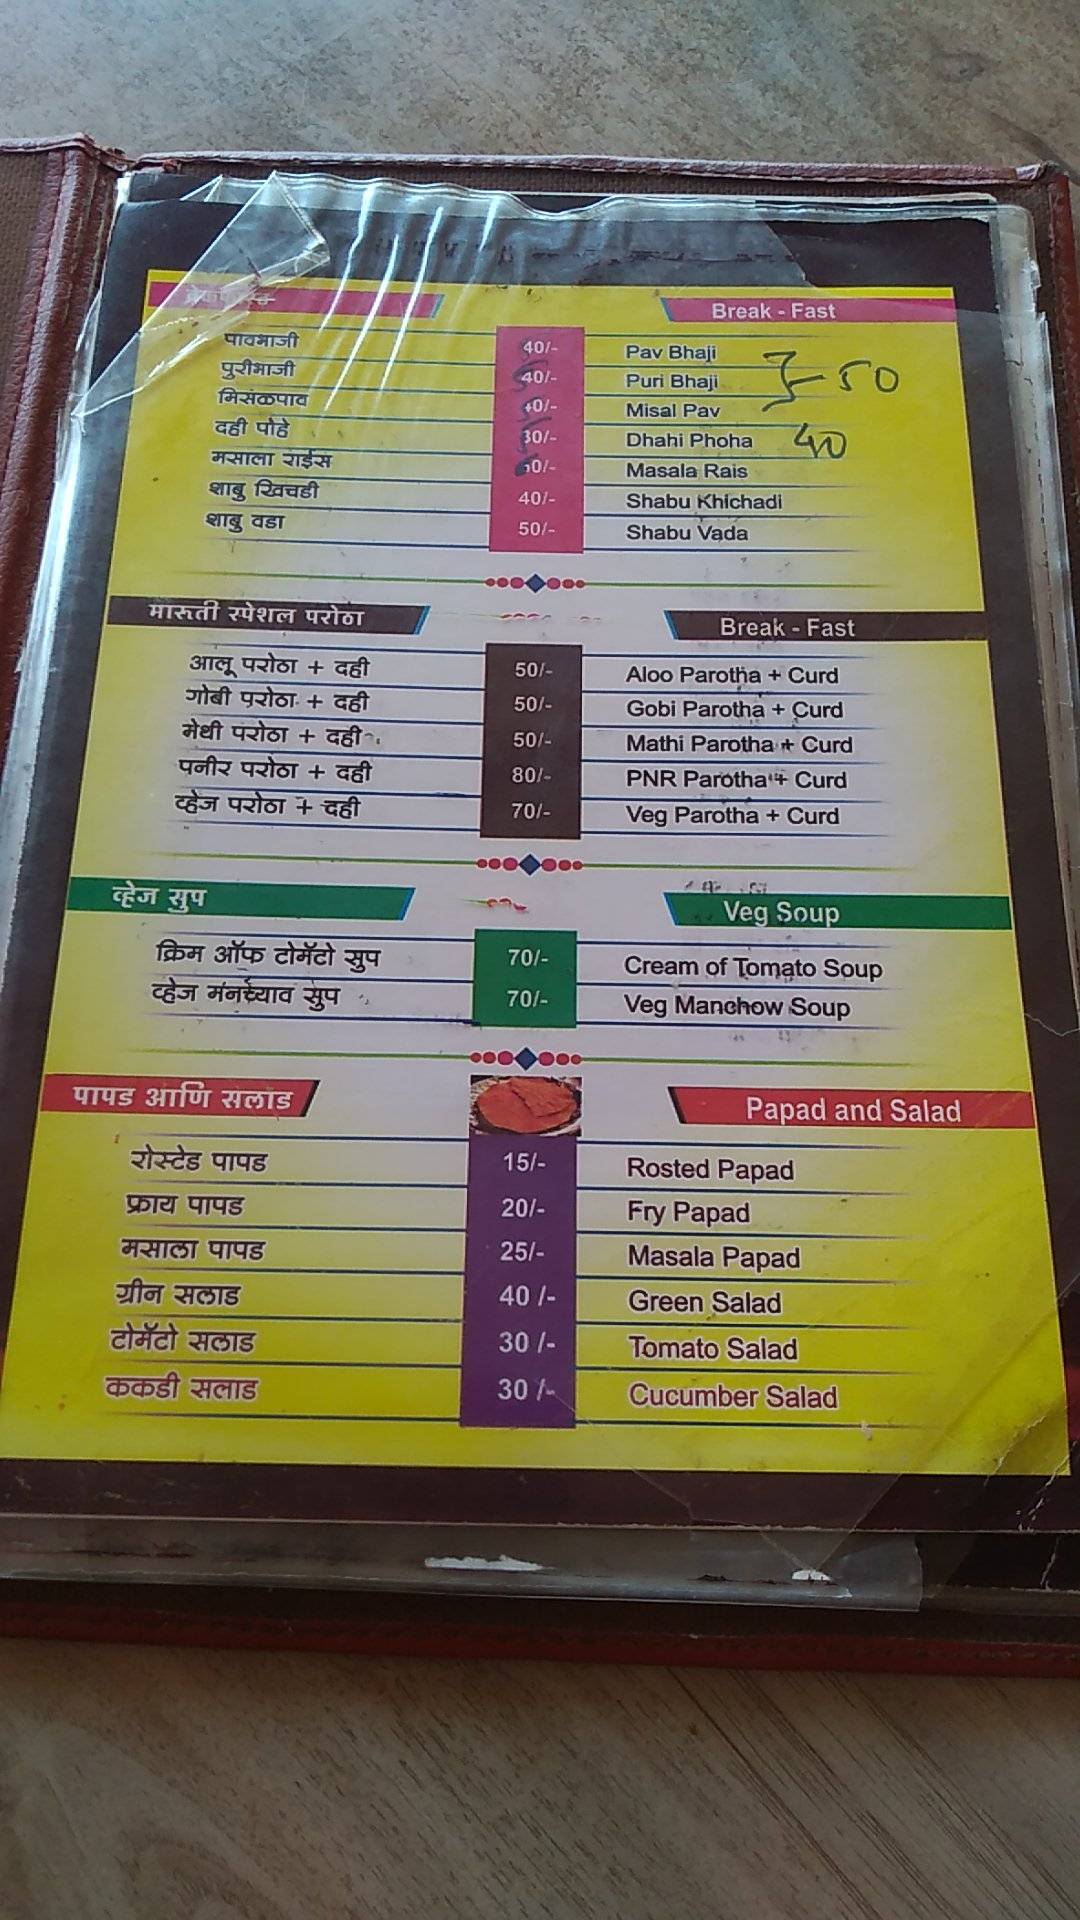 ब्रेकफास्ट Break - Fast
पावभाजी 40/- Pav Bhaji
पुरीभाजी 40/- Puri Bhaji 50
मिसळपाव 40/- Misal Pav
दही पोहे 30/- Dhahi Phoha 40
मसाला राईस Masala Rais
शाबु खिचडी 40/- Shabu Khichadi
शाबु वडा 50/- Shabu Vada
मारुती स्पेशल परोठा Break - Fast
आलू परोठा + दही 50/- Aloo Parotha + Curd
गोबी परोठा + दही 50/- Gobi Parotha + Curd
मेथी परोठा + दही 50/- Mathi Parotha + Curd
पनीर परोठा + दही 80/- PNR Parotha + Curd
व्हेज परोठा + दही 70/- Veg Parotha + Curd
व्हेज सुप Veg Soup
क्रिम ऑफ टोमॅटो सुप 70/- Cream of Tomato Soup
व्हेज मंनच्याव सुप 70/- Veg Manchow Soup
पापड आणि सलाड Papad and Salad
रोस्टेड पापड 15/- Rosted Papad
फ्राय पापड 20/- Fry Papad
मसाला पापड 25/- Masala Papad
ग्रीन सलाड 40 /- Green Salad
टोमॅटो सलाड 30 /- Tomato Salad
ककडी सलाड 30 /- Cucumber Salad